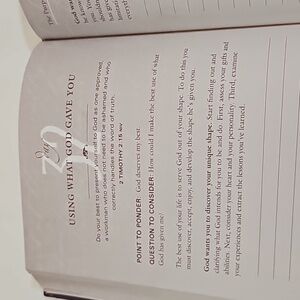 Day
32
USING WHAT GOD GAVE YOU
Do your best to present yourself to God as one approved,
a workman who does not need to be ashamed and who
correctly handles the word of truth.
2 TIMOTHY 2:15 NIV
POINT TO PONDER: God deserves my best.
QUESTION TO CONSIDER: How could I make the best use of what
God has given me?
The best use of your life is to serve God out of your shape. To do this you
must discover, accept, enjoy, and develop the shape he's given you.
God wants you to discover your unique shape. Start finding out and
clarifying what God intends for you to be and do. First, assess your gifts and
abilities. Next, consider your heart and your personality. Third, examine
your experiences and extract the lessons you've learned.